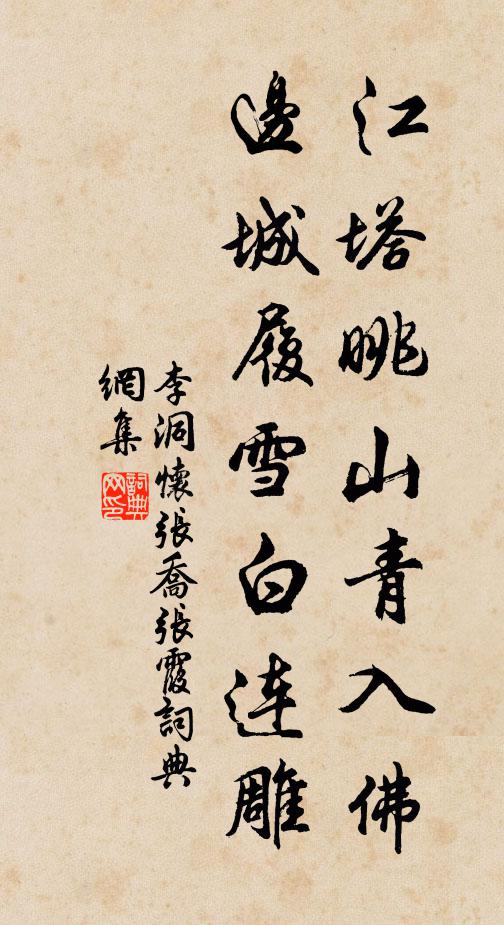 江塔眺山青入佛
邊城履雪白連雕
李洞懷張喬張霞詞典
網集
詞典
网印